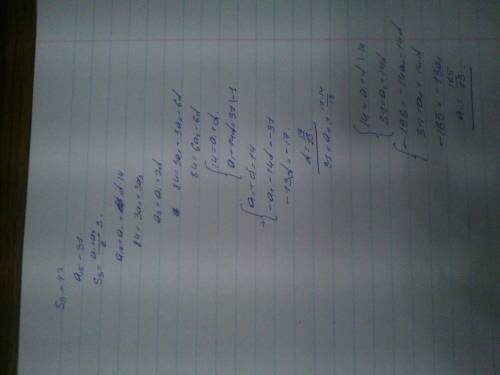 S₃ = 42
a₁₅ = 31
S₃ = (a₁+a₃)/2 · 3
a₁₅ = a₁ + d·14
84 = 3a₁ + 3a₃
a₃ = a₁ + 2d
84 = 3a₁ + 3a₁ + 6d
84 = 6a₁ + 6d
14 = a₁ + d
a₁ + 14d = 31 | -1
+ { a₁ + d = 14
-a₁ - 14d = -31
-13d = -17
d = 17/13
31 = a₁ +
14 = a₁ + d | · 14
31 = a₁ + 14d
-196 = -14a₁ - 14d
31 = a₁ + 14d
-165 = -13a₁
a₁ = 165/13